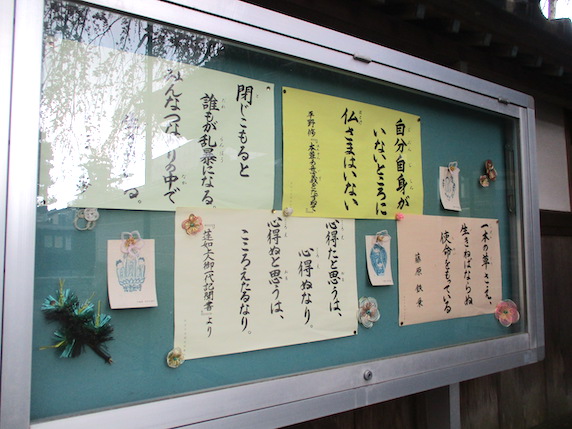 閉じこもると
誰もが乱暴になる。
みんなつながりの中で
る。
自分自身が
いないところに
仏さまはいない
心得たと思うは、
心得ぬなり。
心得ぬと思うは、
こころえたるなり。
『蓮如上人御一代記聞書』より
一本の草こそ
生きねばならぬ
使命をもっている
藤原 鉄乗